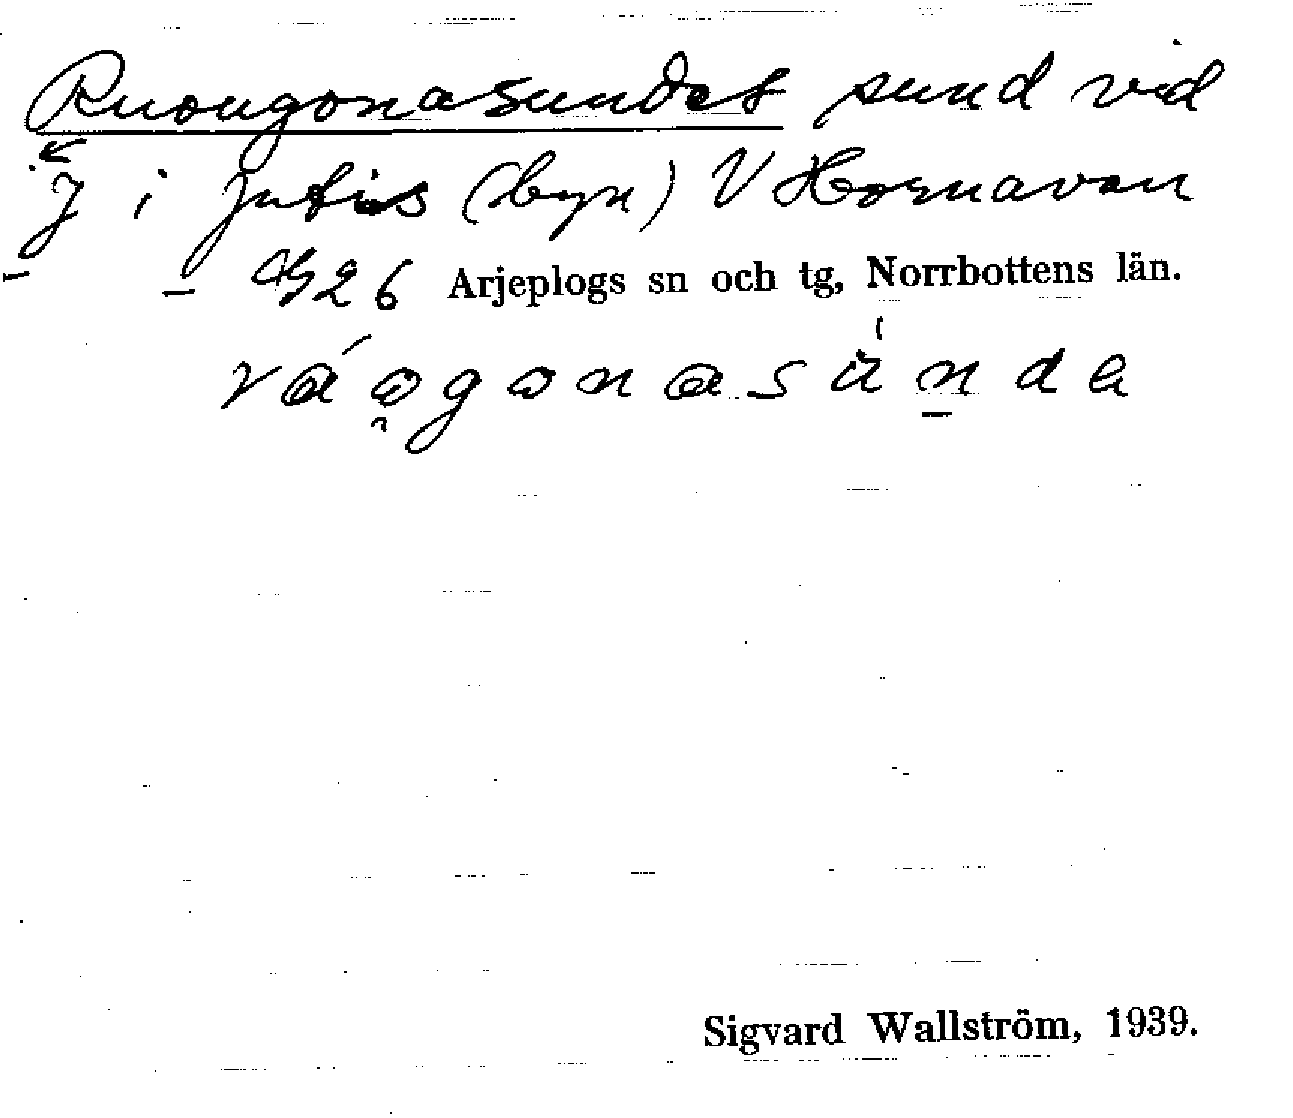 Ruougonasundet sund vid
J i Jutis (byn) V Hornavan
26 Arjeplogs sn och tg, Norrbottens län.
Sigvard Wallström, 1939.